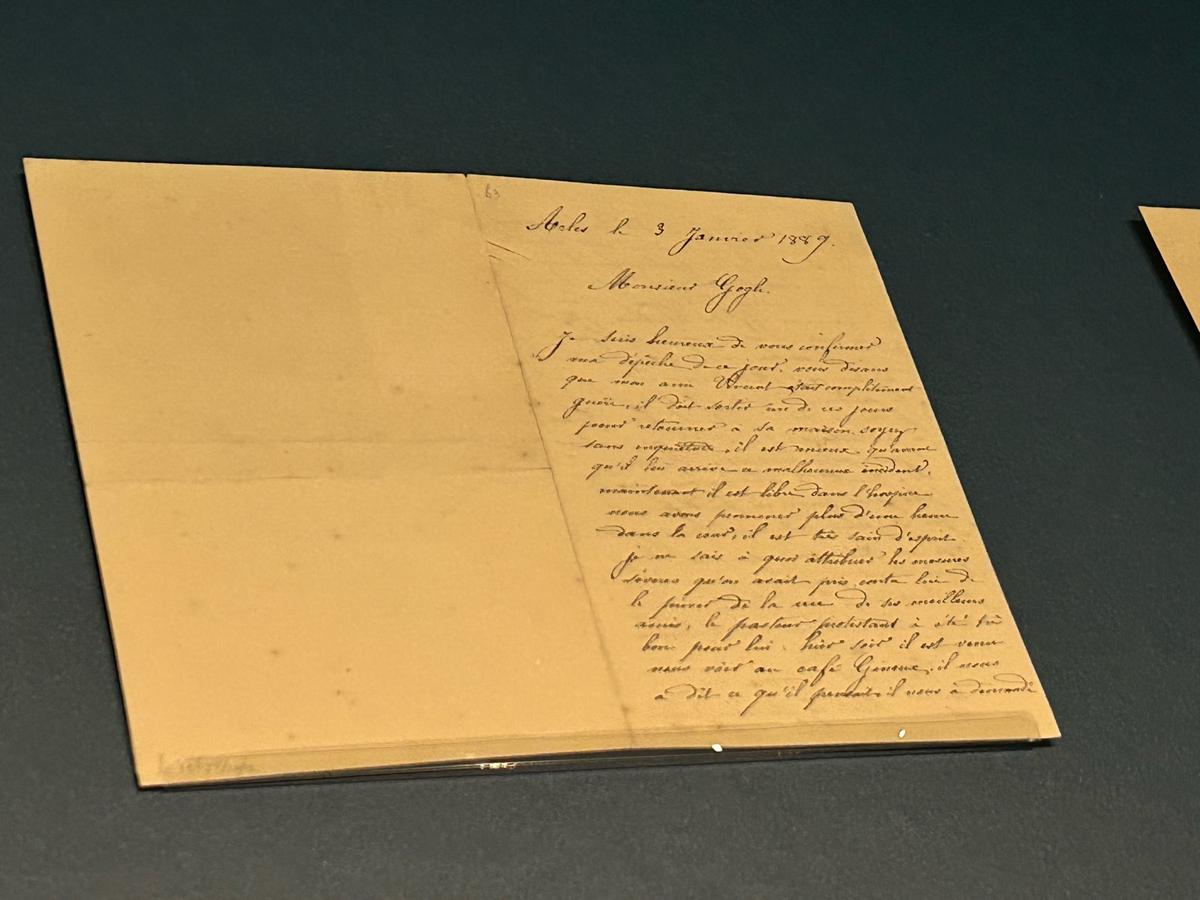 63
Arles le 3 Janvier 1889.
Monsieur Gogh.
Je suis heureux de vous confirmer
ma dépêche de ce jour, vous disans
que mon ami Vincent était complètement
guéri, il doit sortir un de ces jours
pour retourner a sa maison. soyez
sans inquiétude, il est mieux qu'avant
qu'il lui arrive ce malheureux incident,
maintenant il est libre dans l'hospice
nous avons promener plus d'une heure
dans la cour, il est très sain d'esprit.
Je ne sais à quoi attribuer les mesures
sévères qu'on avait pris contre lui de
le priver de la vue de ses meilleurs
amis, le pasteur protestant à été très
bon pour lui. hier soir il est venu
nous voir au café Ginoux, il nous
a dit ce qu'il pensait, il nous à demandé